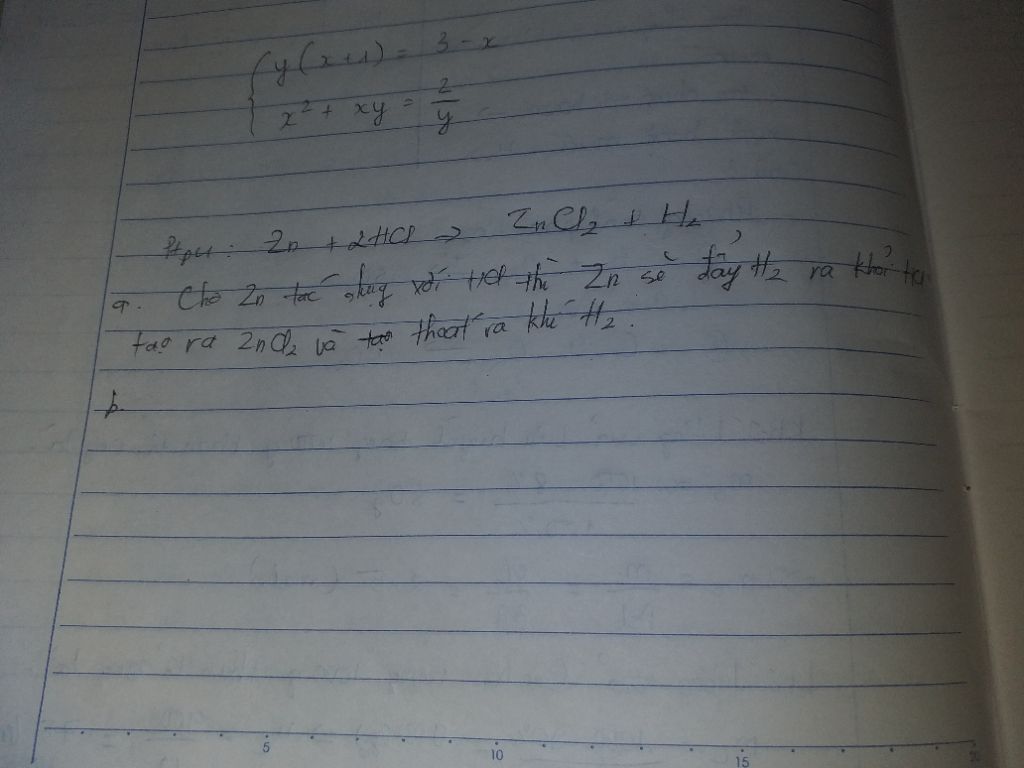 y(x+1) = 3 - x
x² + xy = 2/y
Ptpư: Zn + 2HCl → ZnCl₂ + H₂
a. Cho Zn tác dụng với HCl thì Zn sẽ đẩy H₂ ra khỏi HCl
tạo ra ZnCl₂ và tạo thoát ra khí H₂.
b.
5 10 15